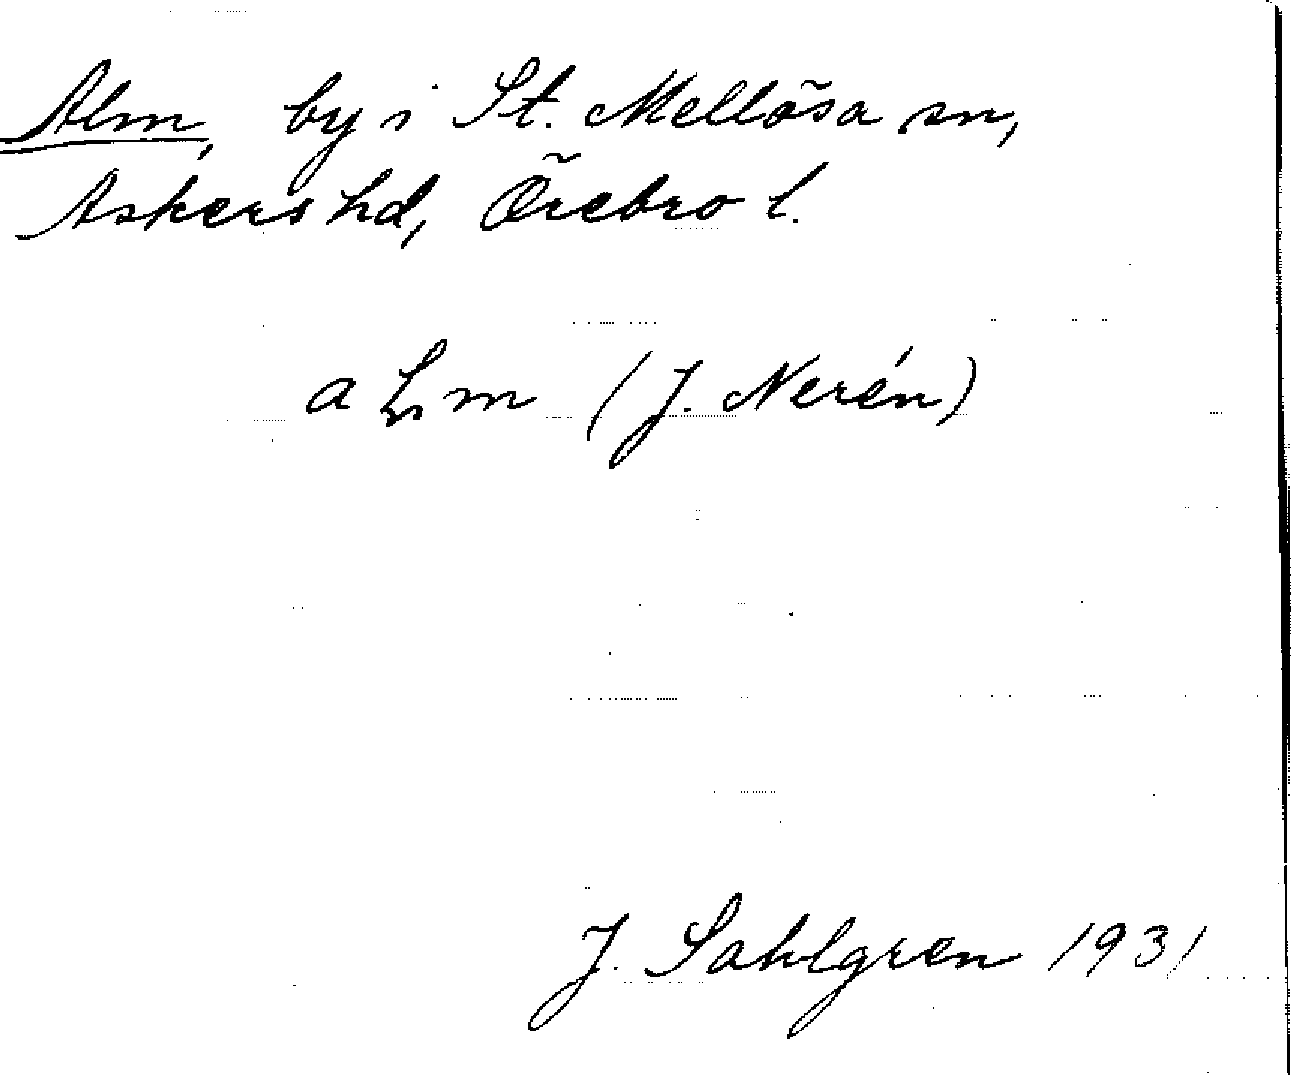 Alm, by i St. Mellösa sn,
Askers hd, Örebro l.
aLm (J. Nerén)
J. Sahlgren 1931